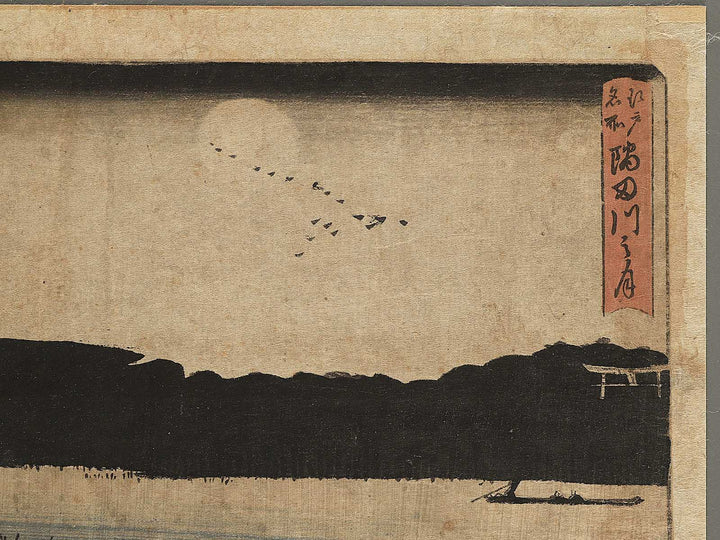 江戸
名所
隅田川之月